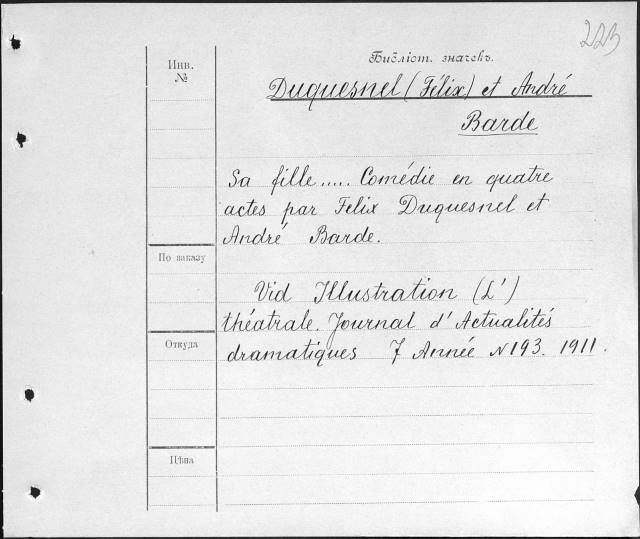 223
Инв.
№
Библіот. значекъ.
Duquesnel (Félix) et André
Barde
Sa fille..... Comédie en quatre
actes par Felix Duquesnel et
André Barde.
По заказу
Vid Illustration (L')
théatrale. Journal d'Actualités
Откуда
dramatiques 7 Année N 193. 1911.
Цѣна